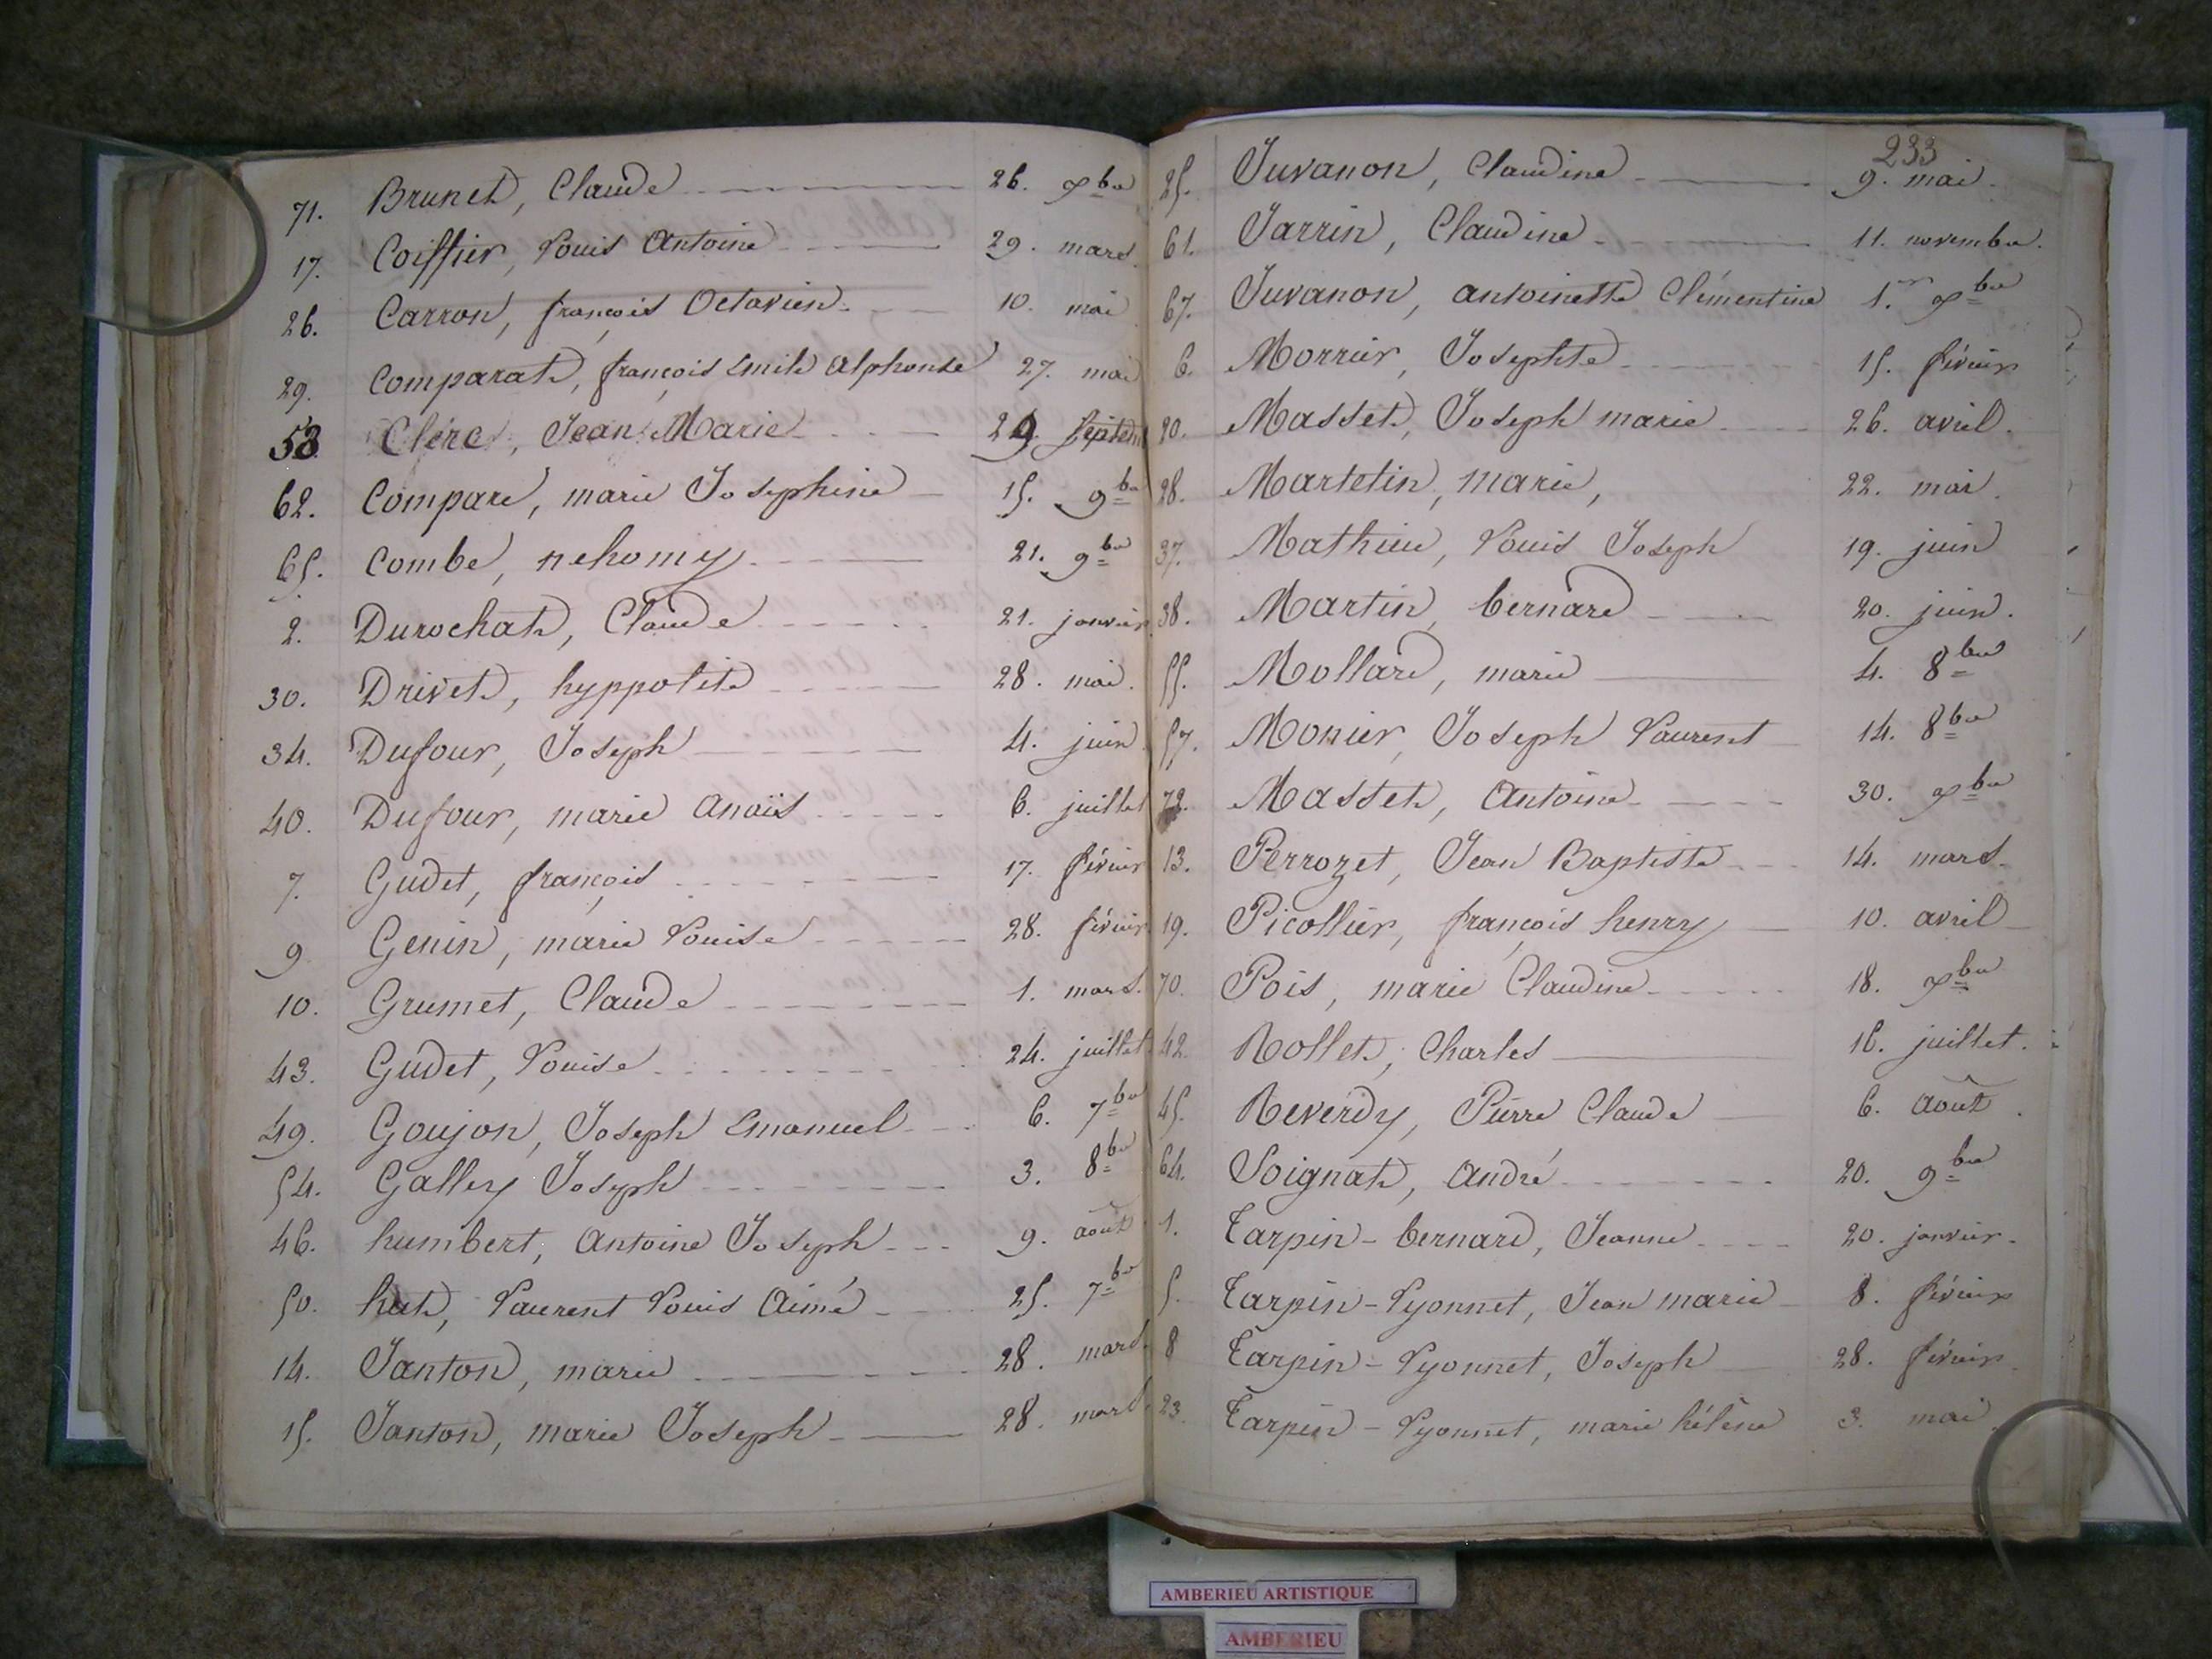 71. Brunet, Claude 26. xbre
17. Coiffier, Louis Antoine 29. mars.
26. Carron, françois Octavien. 10. mai
29. Comparat, françois Emile Alphonse 27. mai
53 Clérc, Jean Marie 29. septem
62. Compare, marie Josephine 15. 9bre
65. Combe, nehomy 21. 9bre
2. Durochat, Claude 21. janvier
30. Drivet, hyppolite 28. mai.
34. Dufour, Joseph 4. juin
40. Dufour, marie Anaïs 6. juillet
7. Gudet, françois 17. février
9 Genin, marie Louise 28. février
10. Grumet, Claude 1. mars.
43. Gudet, Louise 24. juillet
49. Goujon, Joseph Emanuel 6. 7bre
54. Gallery Joseph 3. 8bre
46. humbert, Antoine Joseph 9. août
50. hut, Laurent Louis Aimé 25. 7bre
14. Janton, marie 28. mars.
15. Janton, marie Joseph 28. mars.
233
25. Juvanon, Claudine 9. mai.
61. Jarrin, Claudine 11. novembre.
67. Juvanon, antoinette Clémentine 1.er xbre
6. Morrier, Josephte 15. février
20. Masset, Joseph marie 26. avril.
28. Martelin, marie, 22. mai.
37. Mathieu, Louis Joseph 19. juin
38. Martin, bernard 20. juin.
55. Mollard, marie 4. 8bre
57. Monier, Joseph Laurent 14. 8bre
72. Masset, Antoine 30. xbre
13. Perrozet, Jean Baptiste 14. mars
19. Picollier, françois henry 10. avril
70. Pois, marie Claudine 18. xbre
42. Rollet, Charles 16. juillet.
45. Reverdy, Pierre Claude 6. Août.
64. Soignat, André 20. 9bre
1. Tarpin-bernard, Jeanne 20. janvier.
5. Tarpin-Lyonnet, Jean marie 8. février
8 Tarpin-Lyonnet, Joseph 28. février
23. Tarpin-Lyonnet, marie hélène 3. mai.
AMBERIEU ARTISTIQUE
AMBERIEU